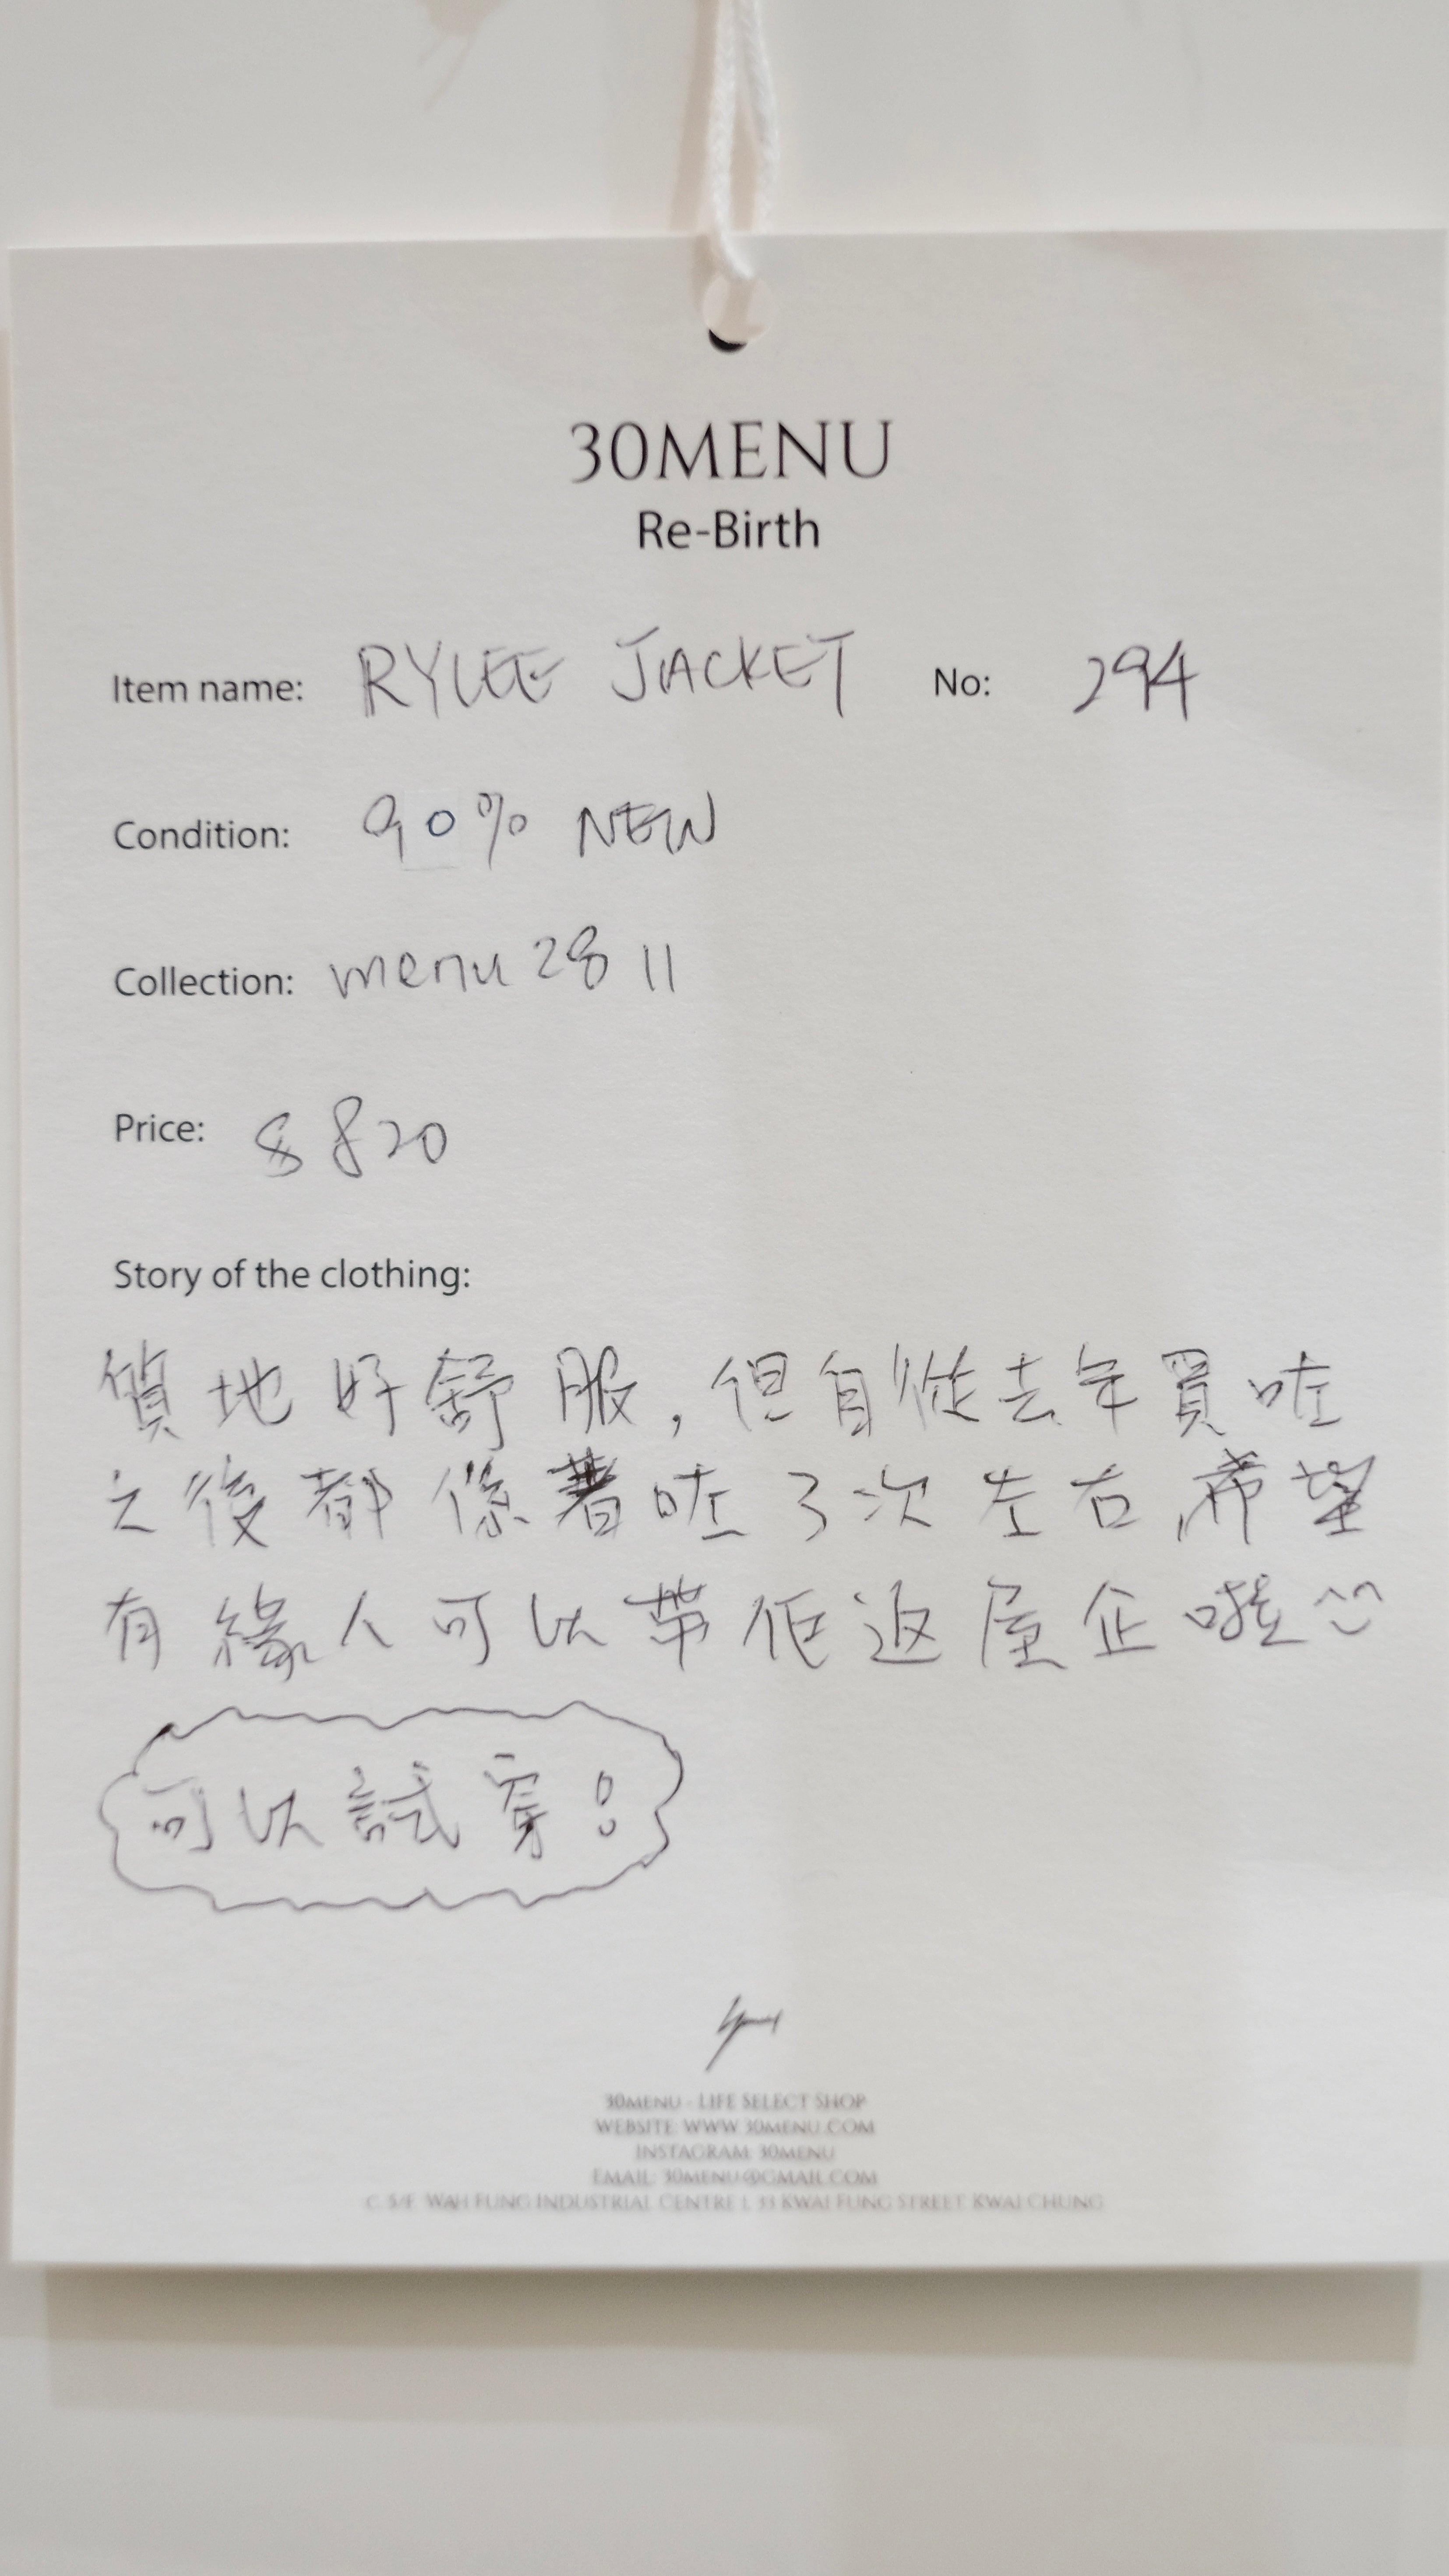 30MENU
Re-Birth
Item name: RYLEE JACKET No: 294
Condition: 90% NEW
Collection: menu 28 11
Price: $820
Story of the clothing:
質地好舒服,但自從去年買咗
之後都係著咗3次左右,希望
有緣人可以帶佢返屋企啦
可以試穿!
30MENU - LIFE SELECT SHOP
WEBSITE: WWW.30MENU.COM
INSTAGRAM: 30MENU
EMAIL: 30MENU@GMAIL.COM
WAH FUNG INDUSTRIAL CENTRE KWAI FUNG STREET KWAI CHUNG